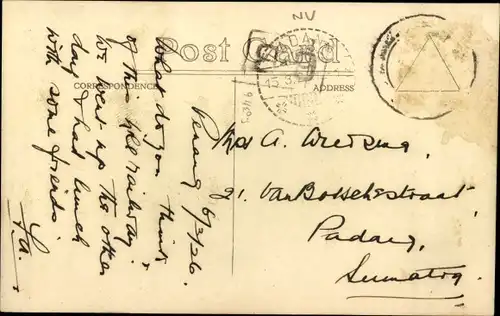 Post Card
CORRESPONDENCE
ADDRESS
Penang 6/3/26.
What do you think
of this hill railway?
We went up the other
day & had lunch
with some friends.
Mrs A.
21 Van Bosschestraat,
Padang,
Sumatra.